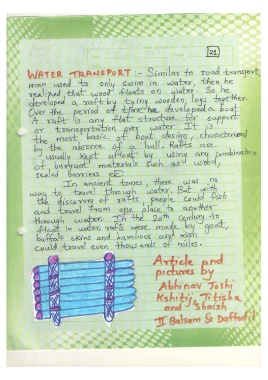 21
WATER TRANSPORT :- Similar to road transport,
man used to only swim in water, then he
realized, that wood floats on water. So he
developed a raft by tying wooden logs together.
Over the period of time he developed a boat.
A raft is any flat structure for support
or transportation over water. It is
the most basic of boat design, characterized
by the absence of a hull. Rafts are
usually kept afloat by using any combination
of buoyant materials such as wood,
sealed barriers etc.
In ancient times, there was no
way to travel through water. But with
the discovery of rafts, people could fish
and travel from one place to another
through water. In the 20th century to
float in water, rafts were made by goat,
buffalo skins and bamboos and man
could travel even thousands of miles.
Article and
pictures by
Abhinav Joshi
Kshitij, Titisha
and Shaish
II Balsam & Daffodil